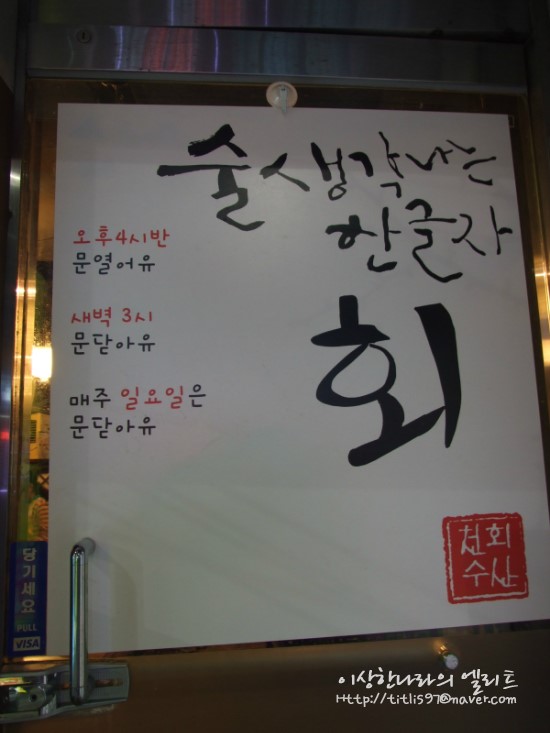 술 생각나는
한글자
회
오후4시반
문열어유
새벽 3시
문닫아유
매주 일요일은
문닫아유
천회
수산
당기세요
PULL
VISA
이상한나라의 엘리트
Http://titlis97@naver.com